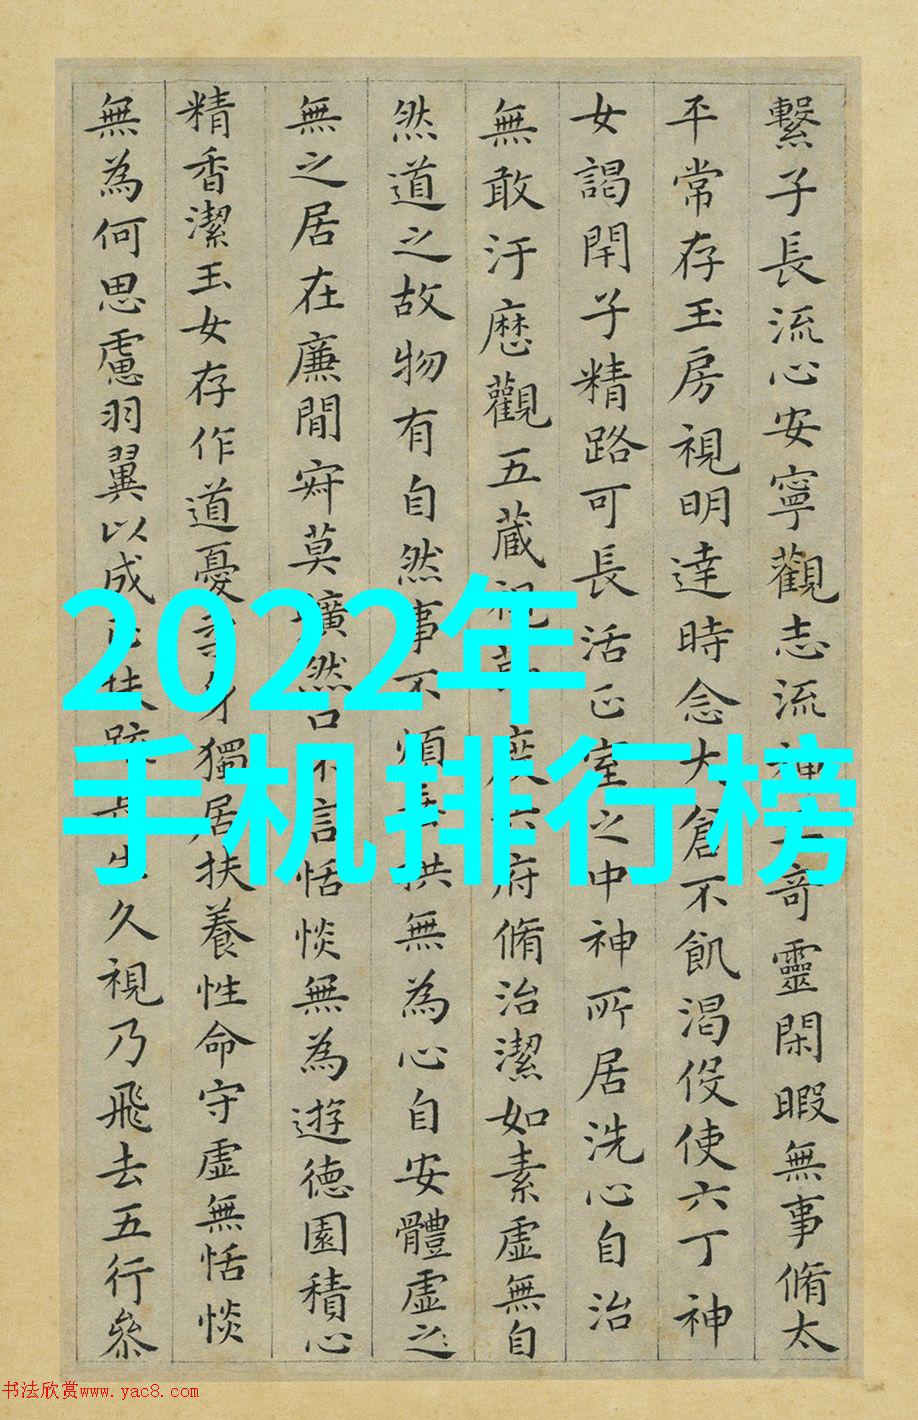 繫子長流心安寧觀志流神奇靈閑暇無事脩太
平常存玉房視明達時念大倉不飢渴伇使六丁神
女謁閇子精路可長活正室之中神所居洗心自治
無敢汙歴觀五藏視度六府脩治潔如素虛無自
然道之故物有自然事不煩垂拱無為心自安體虛之
無之居在廉間㝛莫曠然口不言恬惔無為遊德園積心
精香潔玉女存作道憂柔身獨居扶養性命守虛無恬惔
無為何思慮羽翼以成正扶疏生久視乃飛去五行參
2022年
手机排行榜
书法欣赏www.yac8.com